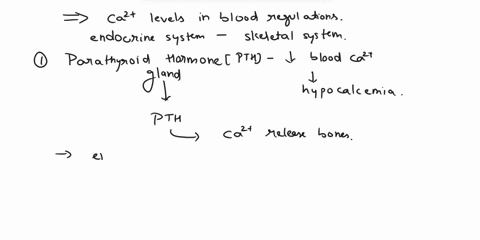 ⇒ Ca²⁺ levels in blood regulations.
endocrine system – skeletal system.
① Parathyroid Hormone [PTH) – ↓ blood Ca²⁺
gland ↓
↓ hypocalcemia.
PTH
↳ Ca²⁺ release bones.
→ el